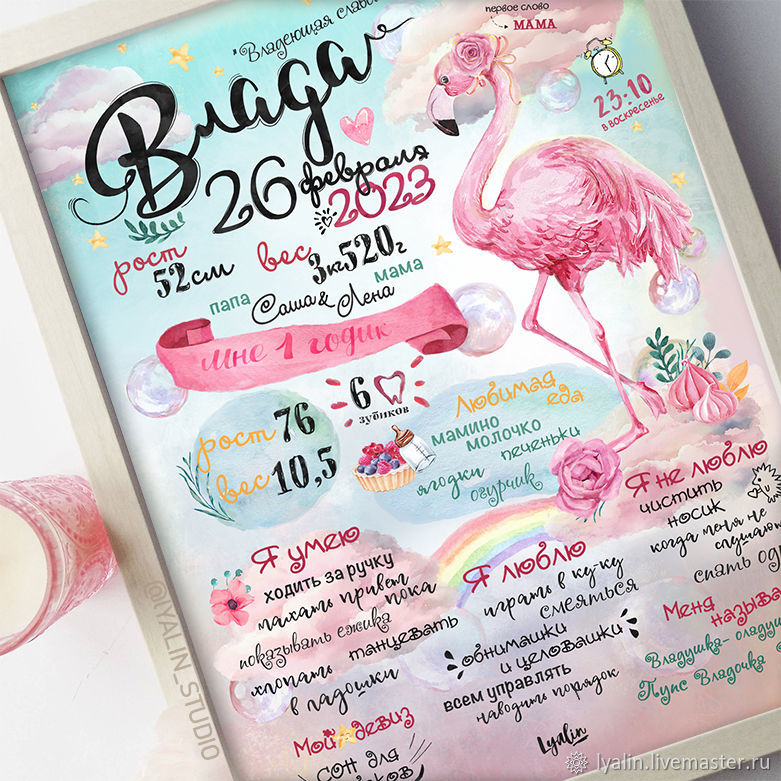 "Владеющая
первое слово
МАМА
Влада
23:10
в воскресенье
26 февраля
2023
рост
52см
вес
3кг520г
папа
мама
Саша & Лена
мне 1 годик
6
зубиков
рост 76
вес 10,5
Любимая
еда
мамино
молочко
печеньки
ягодки
огурчик
Я не люблю
чистить
носик
когда меня не
спать
Я умею
ходить за ручку
махать привет
пока
показывать ежика
танцевать
хлопать
в ладошки
Я люблю
играть в ку-ку
смеяться
обнимашки
и целовашки
всем управлять
наводить порядок
Меня
Владушка-
Пупс Владочка
Мой девиз
сон для
Lyalin
@LYALIN_STUDIO
lyalin.livemaster.ru